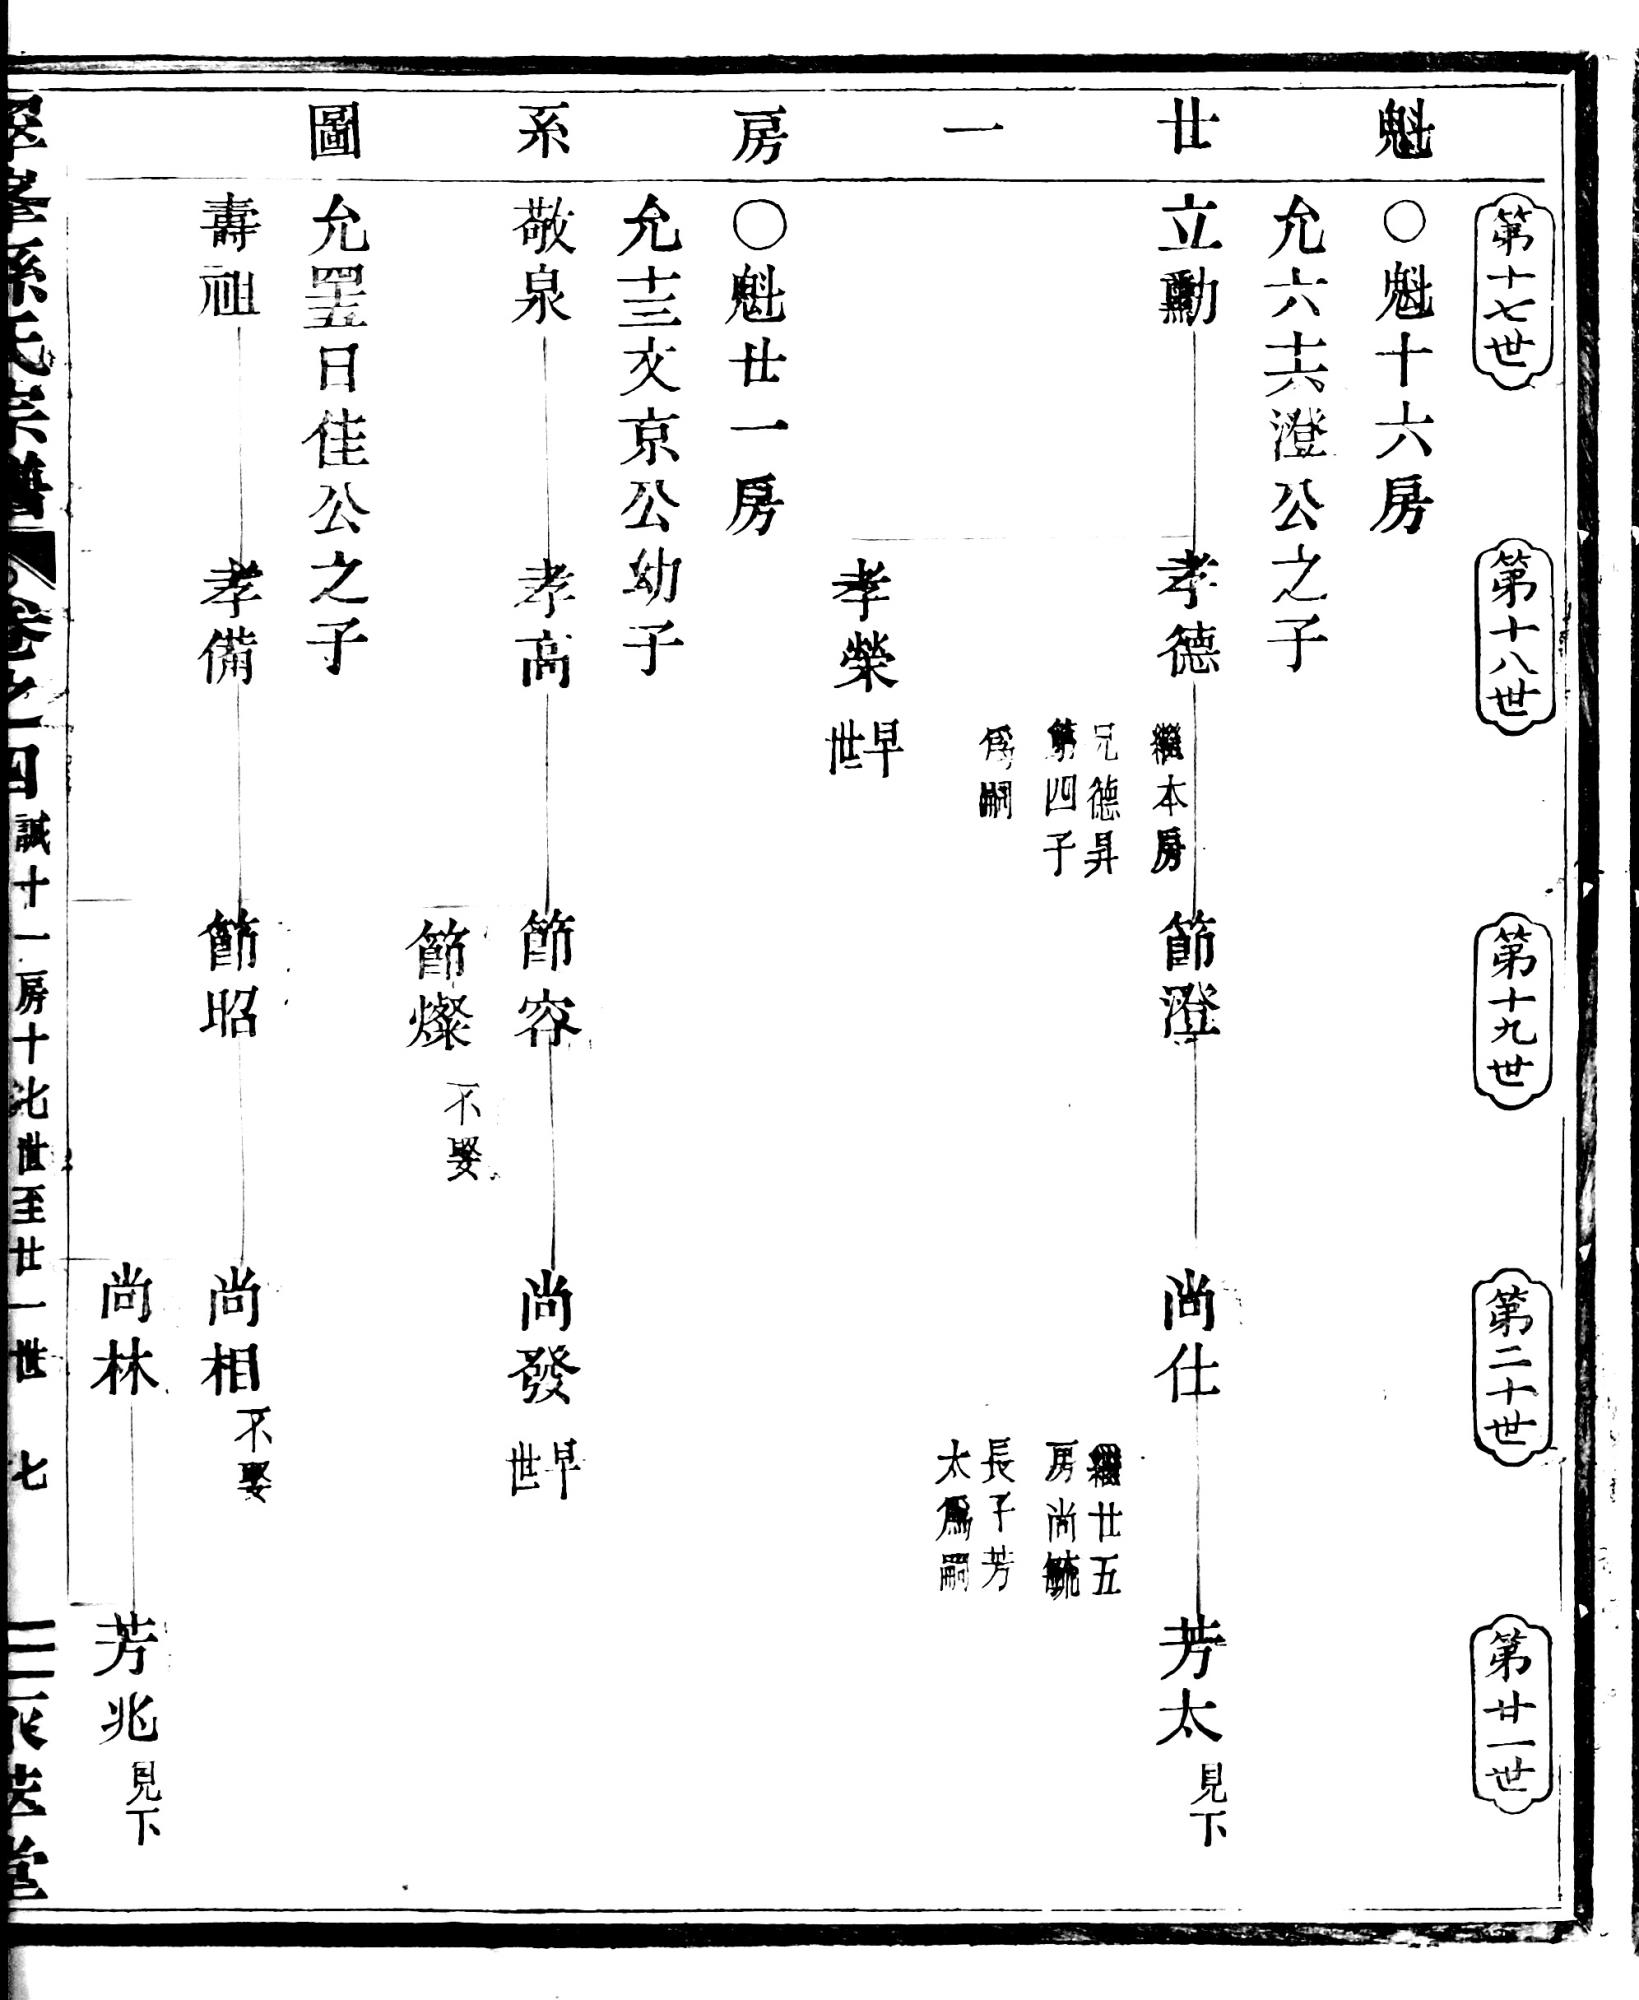 魁廿一房系圖
第十七世
第十八世
第十九世
第二十世
第廿一世
○魁十六房
允六十六澄公之子
立勳
孝德
繼本房
兄德昇
第四子
爲嗣
節澄
尚仕
繼廿五
房尚毓
長子芳
太爲嗣
芳太
見下
孝榮
早世
○魁廿一房
允十三文京公幼子
敬泉
孝高
節容
尚發
早世
節燦
不娶
允四十五日佳公之子
壽祖
孝備
節昭
尚相
不娶
尚林
芳兆
見下
孫氏宗譜
卷之四
誠十一房十七世至廿一世
七